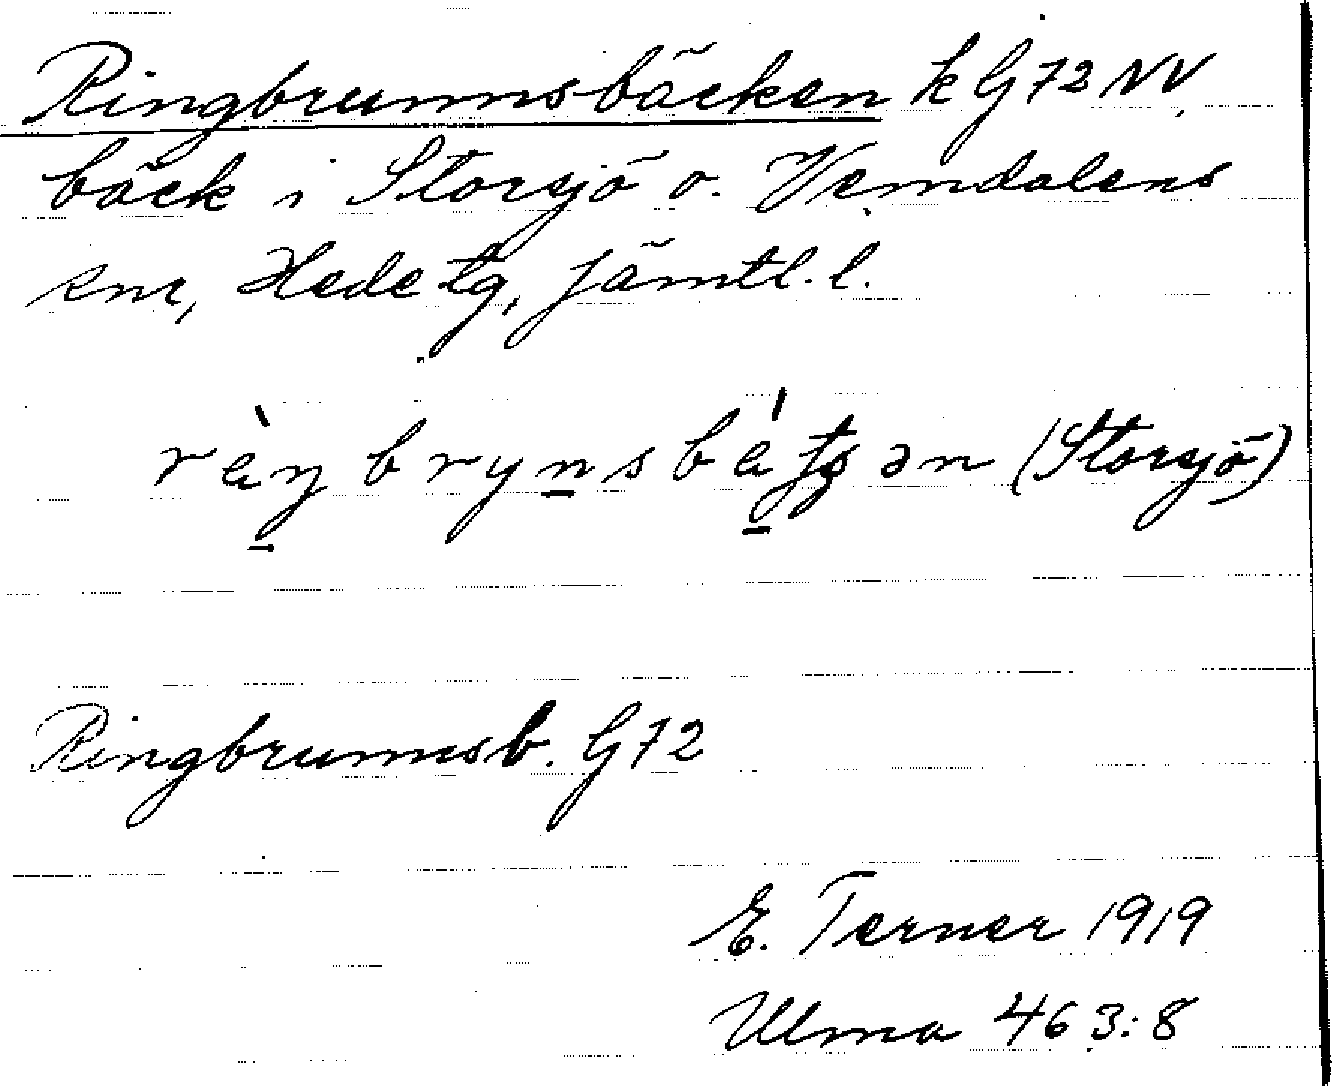 Ringbrunnsbäcken k G 72 NV
bäck i Storsjö o. Vemdalens
snr, Hede tg, Jämtl. l.
(Storsjö)
Ringbrunnsb. G 72
E. Terner 1919
Ulma 463:8